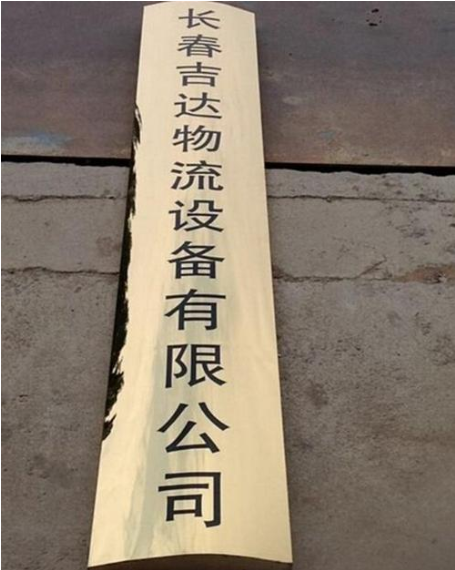 长春吉达物流设备有限公司